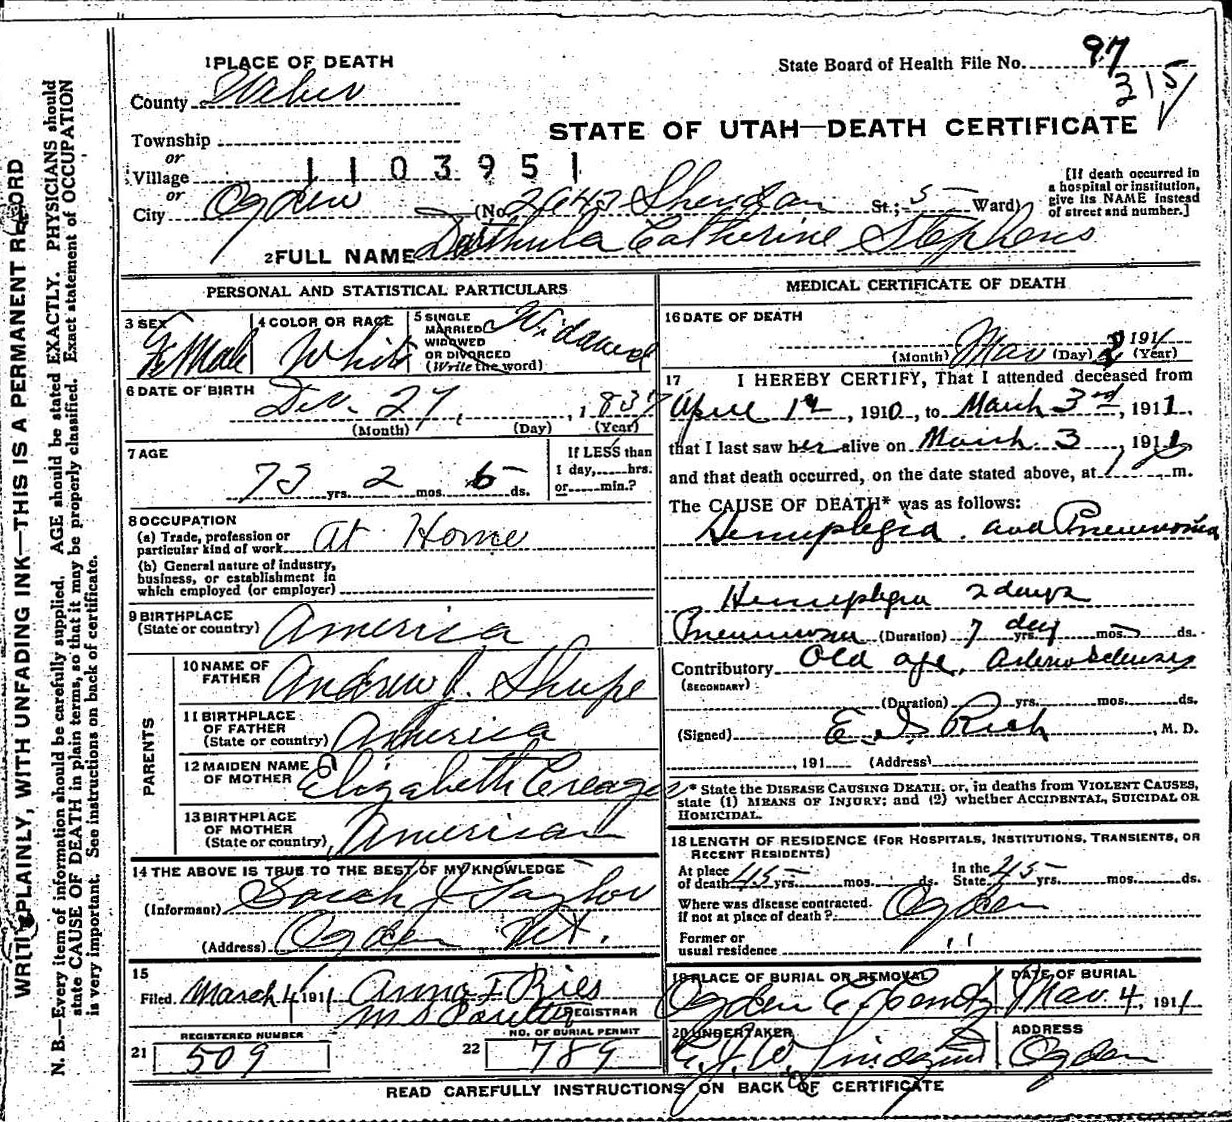 WRITE PLAINLY, WITH UNFADING INK—THIS IS A PERMANENT RECORD
N. B.—Every item of information should be carefully supplied. AGE should be stated EXACTLY. PHYSICIANS should
state CAUSE OF DEATH in plain terms, so that it may be properly classified. Exact statement of OCCUPATION
is very important. See instructions on back of certificate.
1 PLACE OF DEATH
State Board of Health File No. 97
315
County Weber
STATE OF UTAH—DEATH CERTIFICATE
Township
or
Village 1103951
or
City Ogden (No. 2643 Sheridan St.; 5 Ward)
[If death occurred in
a hospital or institution,
give its NAME instead
of street and number.]
2 FULL NAME Darthula Catherine Stephens
PERSONAL AND STATISTICAL PARTICULARS
3 SEX FeMale
4 COLOR OR RACE White
5 SINGLE
MARRIED
WIDOWED
OR DIVORCED
(Write the word)
Widowed
6 DATE OF BIRTH
Dec. 27, 1837
(Month) (Day) (Year)
7 AGE
73 yrs. 2 mos. 6 ds.
If LESS than
1 day, hrs.
or min.?
8 OCCUPATION
(a) Trade, profession or
particular kind of work at Home
(b) General nature of industry,
business, or establishment in
which employed (or employer)
9 BIRTHPLACE
(State or country) America
PARENTS
10 NAME OF
FATHER Andrew J. Shupe
11 BIRTHPLACE
OF FATHER
(State or country) America
12 MAIDEN NAME
OF MOTHER Elizabeth Creager
13 BIRTHPLACE
OF MOTHER
(State or country) American
14 THE ABOVE IS TRUE TO THE BEST OF MY KNOWLEDGE
(Informant) Sarah J Taylor
(Address) Ogden Ut.
15
Filed March 4 1911 Anna F Ries
REGISTRAR
21 REGISTERED NUMBER
509
22 NO. OF BURIAL PERMIT
789
MEDICAL CERTIFICATE OF DEATH
16 DATE OF DEATH
Mar 1911
(Month) (Day) (Year)
17 I HEREBY CERTIFY, That I attended deceased from
April 1st, 1910, to March 3rd, 1911,
that I last saw her alive on March 3, 1911,
and that death occurred, on the date stated above, at m.
The CAUSE OF DEATH* was as follows:
Hemiplegia and Pneumonia
Hemiplegia 2 days
Pneumonia (Duration) 7 day yrs. mos. ds.
Contributory Old age, Arteriosclerosis
(SECONDARY)
(Duration) yrs. mos. ds.
(Signed) E. I. Rich, M. D.
, 191 (Address)
* State the DISEASE CAUSING DEATH, or, in deaths from VIOLENT CAUSES,
state (1) MEANS OF INJURY; and (2) whether ACCIDENTAL, SUICIDAL OR
HOMICIDAL.
18 LENGTH OF RESIDENCE (FOR HOSPITALS, INSTITUTIONS, TRANSIENTS, OR
RECENT RESIDENTS)
At place
of death 45 yrs. mos. ds.
In the
State 45 yrs. mos. ds.
Where was disease contracted.
if not at place of death? Ogden
Former or
usual residence "
19 PLACE OF BURIAL OR REMOVAL
Ogden C. Cemty
DATE OF BURIAL
Mar 4, 1911
20 UNDERTAKER
Lindquist
ADDRESS
Ogden
READ CAREFULLY INSTRUCTIONS ON BACK OF CERTIFICATE